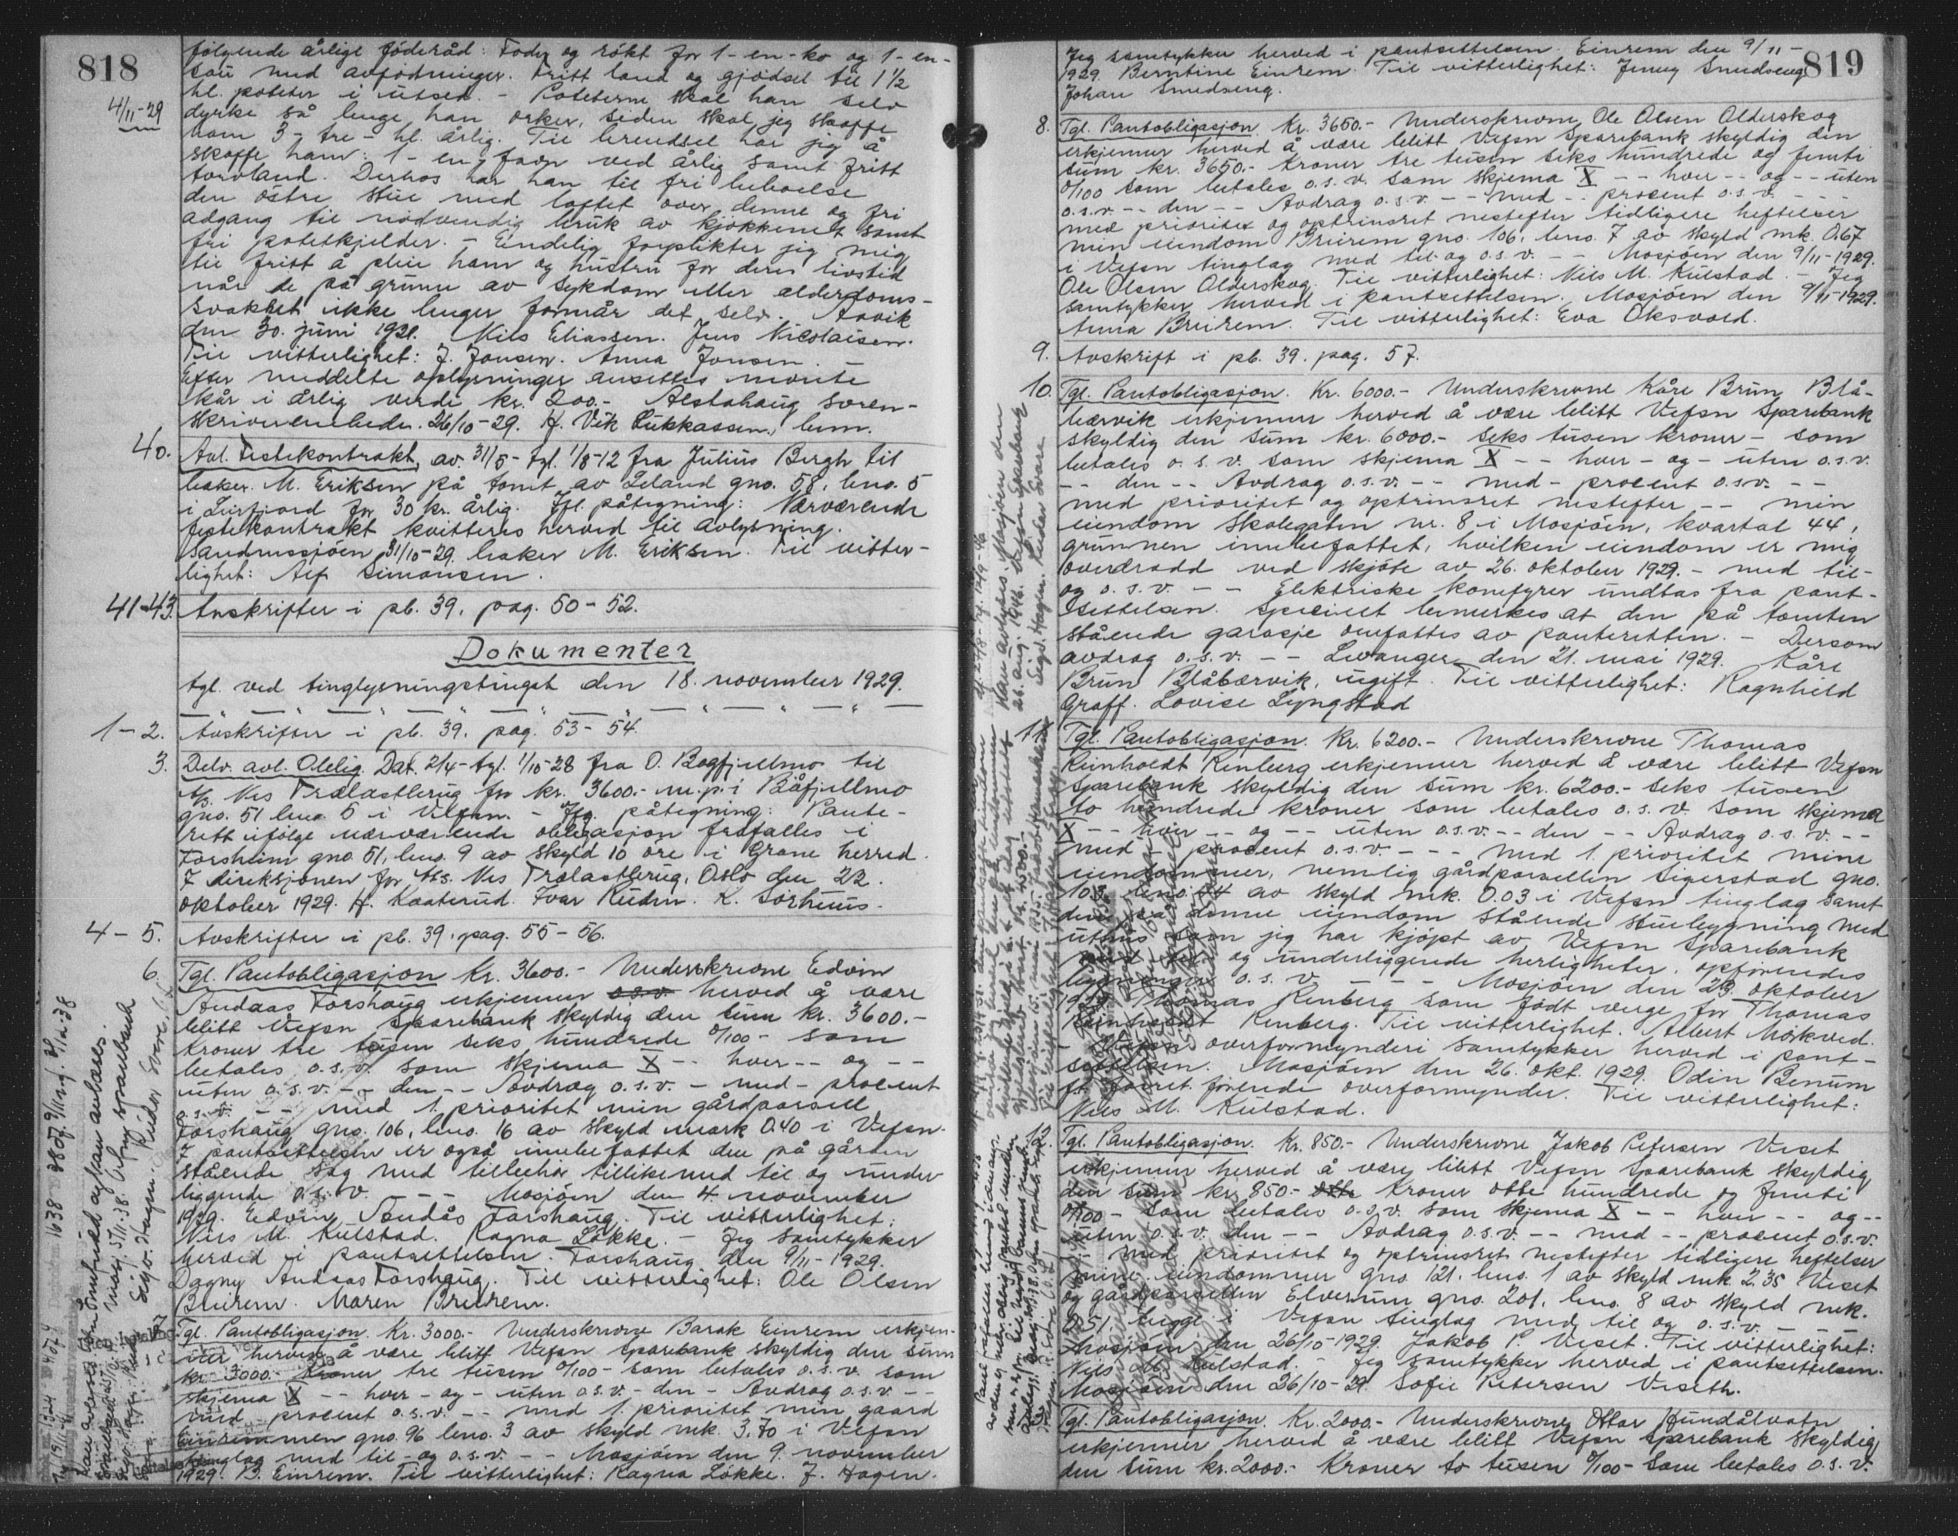 818
følgende årlige föderåd: Foder og rökt for 1-en-ko og 1-en-
sau med avfödninger. Fritt land og gjödsel til 1 1/2
hl. poteter i utsed. - Poteterne skal han selv
4/11-29
dyrke så lenge han orker, siden skal jeg skaffe
ham 3-tre-hl. årlig. Til brendsel har jeg å
skaffe ham: 1-en favn ved årlig samt fritt
torvland. Derhos har han til fri beboelse
den östre stue med loftet over denne og fri
adgang til nödvendig bruk av kjökkenet samt
fri potetkjelder. - Endelig forplikter jeg mig
til fritt å pleie ham og hustru for deres livstid
når de på grunn av sykdom eller alderdoms-
svakhet ikke lenger formår det selv.
den 30. juni 1921. Nils Eliassen. Jens Nicolaisen.
Til vitterlighet: J. Jonsen. Anna Jonsen.
Efter meddelte oplysninger ansettes
kår i årlig verdi kr. 200.- Alstahaug soren-
skriverembede. 26/10-29. H. Vik Lukkassen, bem.
40. Avl. Festekontrakt, av 31/5- tgl. 1/8-12 fra Julius Bergh til
baker M. Eriksen på tomt av Leland gno. 58, bno. 5
i Leirfjord for 30 kr. årlig. Ifl. påtegning: Nærværende
festekontrakt kvitteres herved til avlysning.
Sandnessjöen 31/10-29. baker M. Eriksen. Til vitter-
lighet: Alf Simonsen.
41-43. Avskrifter i pb. 39, pag. 50-52.
Dokumenter
tgl. ved tinglysningstinget den 18. november 1929.
1-2. Avskrifter i pb. 39, pag. 53-54.
3. Delv. avl. Oblig. Dat. 2/4- tgl. 1/10-28 fra O. Bagfjellmo til
A/S. Nes Trælastbrug for kr. 3600.- m.p. i Båfjellmo
gno. 51 bno. 5 i Vefsn. - Ifg. påtegning: Pante-
rett ifölge nærværende obligasjon frafalles i
Forsheim gno. 51, bno. 9 av skyld 10 öre i Grane herred.
I direksjonen for A/S. Nes Trælastbrug, Oslo den 22.
oktober 1929. H. Kaaterud. Ivar Rudin. K. Sörhuus.
4-5. Avskrifter i pb. 39, pag. 55-56.
6. Tgl. Pantobligasjon Kr. 3600.- Underskrevne Edvin
Andaas Forshaug erkjenner o.s.v. herved å være
blitt Vefsn Sparebank skyldig den sum kr. 3600.-
Kroner tre tusen seks hundrede 0/100 - som
betales o.s.v. som skjema X -- hver -- og --
uten o.s.v. -- den -- Avdrag o.s.v. - med - procent
o.s.v. -- med 1. prioritet min gårdparsell
Forshaug gno. 106, bno. 16 av skyld mark 0.40 i Vefsn.
I pantsettelsen er også innbefattet den på gården
stående sag med tilbehör tillikemed til og under-
liggende o.s.v. -- Mosjöen den 4. november
1929. Edvin Andås Forshaug. Til vitterlighet:
Nils M. Kulstad. Ragna Løkke. - Jeg samtykker
herved i pantsettelsen. Forshaug den 9/11-1929.
Dagny Andaas Forshaug. Til vitterlighet: Ole Olsen
Breirem. Maren Breirem.
7. Tgl. Pantobligasjon. Kr. 3000.- Underskrevne Barak Einrem erkjen-
ner herved å være blitt Vefsn Sparebank skyldig den sum
kr. 3000.- Kroner tre tusen 0/100 - som betales o.s.v. som
skjema X -- hver - og - uten o.s.v. - den - Avdrag o.s.v. --
med procent o.s.v. -- med 1. prioritet min gaard
Einremmen gno. 96 bno. 3 av skyld mk. 3.70 i Vefsn
tinglag med til og o.s.v. -- Mosjöen den 9. november
1929. B. Einrem. Til vitterlighet: Ragna Løkke. J. Hagen.
819
Jeg samtykker herved i pantsettelsen. Einrem den 9/11-
1929. Berntine Einrem. Til vitterlighet: Jenny Smedseng
Johan Smedseng.
8. Tgl. Pantobligasjon. Kr. 3650.- Underskrevne Ole Olsen Olderskog
erkjenner herved å være blitt Vefsn Sparebank skyldig den
sum kr. 3650.- Kroner tre tusen seks hundrede og femti
0/100 som betales o.s.v. som skjema X -- hver -- og -- uten
o.s.v. -- den -- Avdrag o.s.v. -- med -- procent o.s.v. --
med prioritet og optrinsret nestefter tidligere heftelser
min eiendom Breirem gno. 106, bno. 7 av skyld mk. 0.67
i Vefsn tinglag med til og o.s.v. -- Mosjöen den 9/11-1929.
Ole Olsen Olderskog. Til vitterlighet: Nils M. Kulstad. - Jeg
samtykker herved i pantsettelsen. Mosjöen den 9/11-1929.
Anna Breirem. Til vitterlighet: Eva Oksvold.
9. Avskrift i pb. 39. pag. 57.
10. Tgl. Pantobligasjon. Kr. 6000.- Underskrevne Kåre Brun Blå-
bærvik erkjenner herved å være blitt Vefsn Sparebank
skyldig den sum kr. 6000.- seks tusen kroner - som
betales o.s.v. som skjema X -- hver - og - uten o.s.v.
-- den -- Avdrag o.s.v. -- med - procent o.s.v. --
med prioritet og optrinsret nestefter -- min
eiendom Skolegaten nr. 8 i Mosjöen, kvartal 44,
grunnen innbefattet, hvilken eiendom er mig
overdradd ved skjöte av 26. oktober 1929. - med til-
og o.s.v. -- Elektriske komfyrer undtas fra pant-
settelsen. Specielt bemerkes at den på tomten
stående garasje omfattes av panteretten. - Dersom
avdrag o.s.v. -- Levanger den 21. mai 1929. Kåre
Brun Blåbærvik, ugift. Til vitterlighet: Ragnhild
Graff. Lovise Lyngstad
11. Tgl. Pantobligasjon. Kr. 6200.- Underskrevne Thomas
Reinholdt Renberg erkjenner herved å være blitt Vefsn
Sparebank skyldig den sum kr. 6200.- seks tusen
to hundrede kroner som betales o.s.v. som skjema
X -- hver -- og -- uten o.s.v. -- den -- Avdrag o.s.v. --
med - procent o.s.v. -- med 1. prioritet mine
eiendommer, nemlig gårdparsellen Sigerstad gno.
103, bno. 44 av skyld mk. 0.03 i Vefsn tinglag samt
den på denne eiendom stående stuebygning med
uthus som jeg har kjöpt av Vefsn Sparebank
med til og underliggende herligheter, opförendes
bygninger o.s.v. -- Mosjöen den 23. oktober
1929. Thomas Renberg som födt verge for Thomas
Reinholdt Renberg. Til vitterlighet. Albert Mökved.
- Vefsn overformynderi samtykker herved i pant-
settelsen. Mosjöen den 26. okt. 1929. Odin Benum
f.t. forret. förende overformynder. Til vitterlighet:
Nils M. Kulstad.
12. Tgl. Pantobligasjon. Kr. 850.- Underskrevne Jakob Petersen Veset
erkjenner herved å være blitt Vefsn Sparebank skyldig
den sum kr. 850.- otte Kroner otte hundrede og femti
0/100 - som betales o.s.v. som skjema X -- hver -- og --
uten o.s.v. den -- Avdrag o.s.v. -- med -- procent o.s.v.
- med prioritet og optrinsret nestefter tidligere heftelser
mine eiendommer gno. 121, bno. 1 av skyld mk. 2.35 Veset
og gårdparsellen Elverum gno. 201, bno. 8 av skyld mk.
0.51 begge i Vefsn tinglag med til og o.s.v. --
Mosjöen den 26/10-1929. Jakob P. Veset. Til vitterlighet:
Nils M. Kulstad. - Jeg samtykker herved i pantsettelsen.
Mosjöen den 26/10-29. Sofie Petersen Veseth.
13. Tgl. Pantobligasjon. Kr. 2000.- Underskrevne Ottar Hundålvatn
erkjenner herved å være blitt Vefsn Sparebank skyldig
den sum kr. 2000.- Kroner to tusen 0/100 - som betales o.s.v.